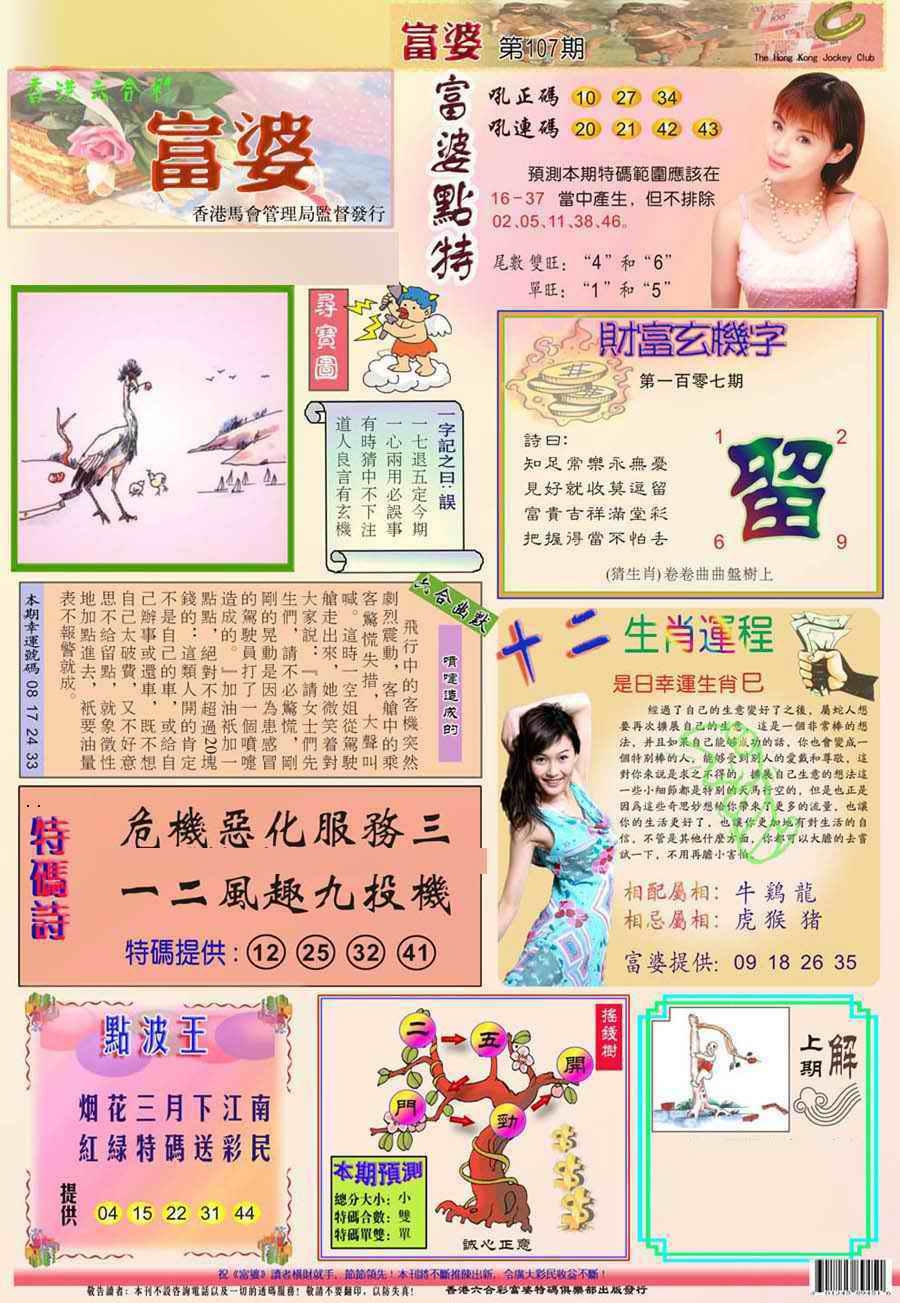 富婆 第107期
The Hong Kong Jockey Club
香港六合彩
富婆
香港馬會管理局監督發行
富婆點特
吼正碼 10 27 34
吼連碼 20 21 42 43
預測本期特碼範圍應該在
16-37 當中產生，但不排除
02、05、11、38、46。
尾數雙旺：“4”和“6”
單旺：“1”和“5”
尋寶圖
一字記之曰：誤
一七退五定今期
一心兩用必誤事
有時猜中不下注
道人良言有玄機
財富玄機字
第一百零七期
詩曰：
知足常樂永無憂
見好就收莫逗留
富貴吉祥滿堂彩
把握得當不怕丟
1 2
留
6 9
(猜生肖)卷卷曲曲盤樹上
六合幽默
噴嚏造成的
飛行中的客機突然
劇烈震動，客艙中的乘
客驚慌失措，大聲叫
喊。這時一空姐從駕駛
艙走出來，她微笑着對
大家說：『請女士們先
生們，請不必驚慌，剛
剛的晃動是因為患感冒
的駕駛員打了一個噴嚏
造成的。』加油衹加一
點點，絕對不超過20塊
錢的：這類人開的肯定
不是自己的車，或給自
己辦事或還車，既不想
自己太破費，又不好意
思不給留點，就象徵性
地加點進去，衹要油量
表不報警就成。
本期幸運號碼 08 17 24 33
十二生肖運程
是日幸運生肖巳
經過了自己的生意變好了之後，屬蛇人想
要再次擴展自己的生意，這是一個非常棒的想
法，并且如果自己能够成功的話，你也會變成一
個特別棒的人，能够受到別人的愛戴和尊敬，這
對你來說是求之不得的，擴展自己生意的想法這
一些小細節都是特別的天馬行空的，但是也正是
因爲這些奇思妙想給你帶來了更多的流量，也讓
你的生活更好了，也讓你更加地有對生活的自
信，不管是其他什麼方面，你都可以大膽的去嘗
試一下，不用再膽小害怕。
相配屬相：牛 鷄 龍
相忌屬相：虎 猴 猪
富婆提供：09 18 26 35
特碼詩
危機惡化服務三
一二風趣九投機
特碼提供：12 25 32 41
點波王
烟花三月下江南
紅緑特碼送彩民
提供 04 15 22 31 44
搖錢樹
二 五 開
門 勁
本期預測
總分大小：小
特碼合數：雙
特碼單雙：單
誠心正意
上期解
祝《富婆》讀者橫財就手，節節領先！本刊將不斷推陳出新，令廣大彩民收益不斷！
敬告讀者：本刊不設咨詢電話以及一切的透碼服務！敬請不要翻印，以防失真！ 香港六合彩富婆特碼俱樂部出版發行